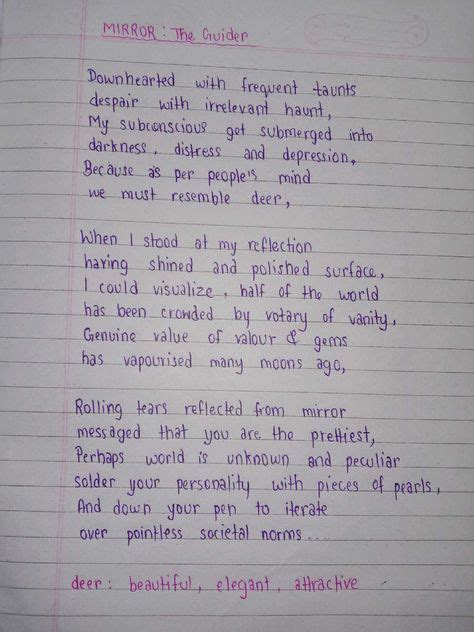 MIRROR : The Guider
Downhearted with frequent taunts
despair with irrelevant haunt,
My subconscious got submerged into
darkness, distress and depression,
Because as per people's mind
we must resemble deer,
When I stood at my reflection
having shined and polished surface,
I could visualize, half of the world
has been crowded by votary of vanity,
Genuine value of valour & gems
has vapourised many moons ago,
Rolling tears reflected from mirror
messaged that you are the prettiest,
Perhaps world is unknown and peculiar
solder your personality with pieces of pearls,
And down your pen to iterate
over pointless societal norms....
deer : beautiful, elegant, attractive